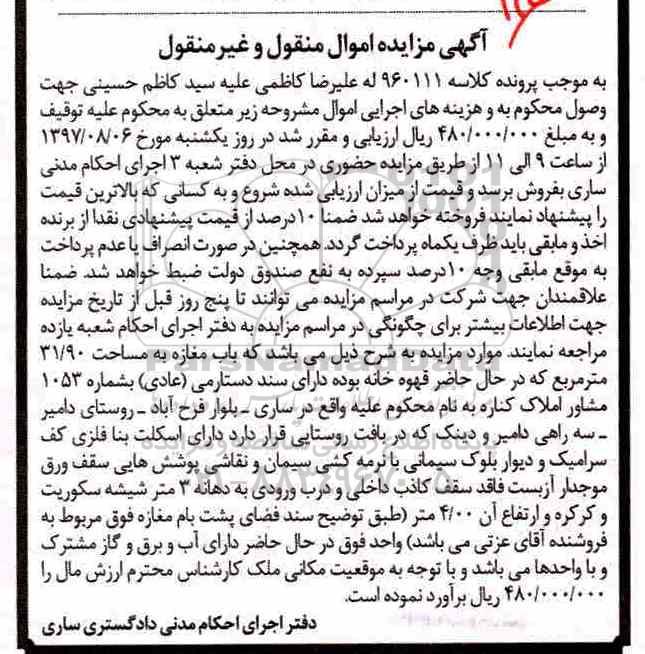 آگهی مزایده اموال منقول و غیرمنقول
به موجب پرونده کلاسه ۹۶۰۱۱۱ له علیرضا کاظمی علیه سید کاظم حسینی جهت
وصول محکوم به و هزینه های اجرایی اموال مشروحه زیر متعلق به محکوم علیه توقیف
و به مبلغ ۴۸۰/۰۰۰/۰۰۰ ریال ارزیابی و مقرر شد در روز یکشنبه مورخ ۱۳۹۷/۰۸/۰۶
از ساعت ۹ الی ۱۱ از طریق مزایده حضوری در محل دفتر شعبه ۳ اجرای احکام مدنی
ساری بفروش برسد و قیمت از میزان ارزیابی شده شروع و به کسانی که بالاترین قیمت
را پیشنهاد نمایند فروخته خواهد شد ضمنا ۱۰درصد از قیمت پیشنهادی نقدا از برنده
اخذ و مابقی باید ظرف یکماه پرداخت گردد. همچنین در صورت انصراف یا عدم پرداخت
به موقع مابقی وجه ۱۰درصد سپرده به نفع صندوق دولت ضبط خواهد شد. ضمنا
علاقمندان جهت شرکت در مراسم مزایده می توانند تا پنج روز قبل از تاریخ مزایده
جهت اطلاعات بیشتر برای چگونگی در مراسم مزایده به دفتر اجرای احکام شعبه یازده
مراجعه نمایند. موارد مزایده به شرح ذیل می باشد که باب مغازه به مساحت ۳۱/۹۰
مترمربع که در حال حاضر قهوه خانه بوده دارای سند دستارمی (عادی) بشماره ۱۰۵۳
مشاور املاک کناره به نام محکوم علیه واقع در ساری ـ بلوار فرح آباد ـ روستای دامیر
ـ سه راهی دامیر و دینک که در بافت روستایی قرار دارد دارای اسکلت بنا فلزی کف
سرامیک و دیوار بلوک سیمانی با نرمه کشی سیمان و نقاشی پوشش هایی سقف ورق
موجدار آزبست فاقد سقف کاذب داخلی و درب ورودی به دهانه ۳ متر شیشه سکوریت
و کرکره و ارتفاع آن ۴/۰۰ متر (طبق توضیح سند فضای پشت بام مغازه فوق مربوط به
فروشنده آقای عزتی می باشد) واحد فوق در حال حاضر دارای آب و برق و گاز مشترک
و با واحدها می باشد و با توجه به موقعیت مکانی ملک کارشناس محترم ارزش مال را
۴۸۰/۰۰۰/۰۰۰ ریال برآورد نموده است.
دفتر اجرای احکام مدنی دادگستری ساری
ParsNamadData